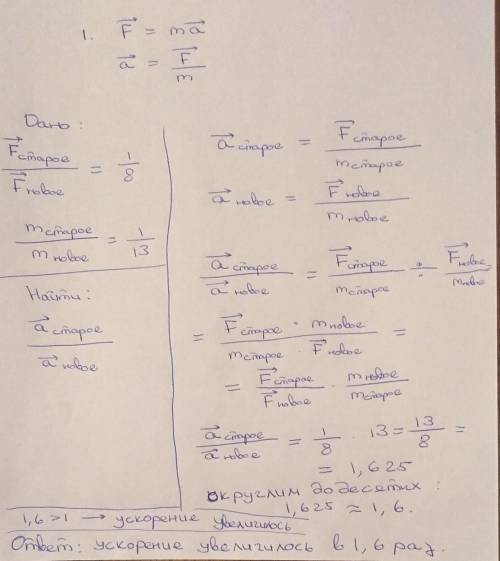 1. F⃗ = ma⃗
a⃗ = F⃗/m
Дано:
F⃗старое/F⃗новое = 1/8
mстарое/mновое = 1/13
Найти:
a⃗старое/a⃗новое
a⃗старое = F⃗старое/mстарое
a⃗новое = F⃗новое/mновое
a⃗старое/a⃗новое = F⃗старое/mстарое ÷ F⃗новое/mновое
= F⃗старое · mновое/mстарое · F⃗новое =
= F⃗старое/F⃗новое · mновое/mстарое
a⃗старое/a⃗новое = 1/8 · 13 = 13/8 =
= 1,625
округлим до десятых:
1,625 ≈ 1,6.
1,6 > 1 → ускорение увеличилось
Ответ: ускорение увеличилось в 1,6 раз.